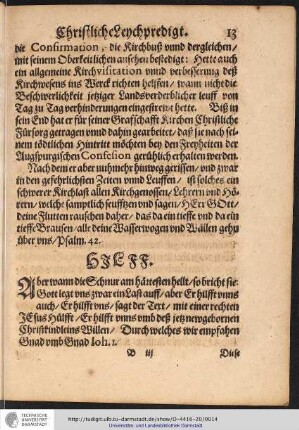 Christliche Leychpredigt. 13
die Confirmation, die Kirchbuß vnnd dergleichen/
mit seinem Oberkeitlichen ansehen bestedigt: Hette auch
ein allgemeine Kirchvisitation vnnd verbesserung deß
Kirchwesens ins Werck richten helffen/ wann nicht die
Beschwerlichkeit jetziger Landsverderblicher leuff von
Tag zu Tag verhinderungen eingestrewt hette. Biß in
sein End hat er für seiner Graffschafft Kirchen Christliche
Fürsorg getragen vnnd dahin gearbeitet/ daß sie nach sei-
nem tödtlichen Hintritt möchten bey den Freyheiten der
Augspurgischen Confession gerühlich erhalten werden.
Nach dem er aber nuhmehr hinweg gerissen/ vnd zwar
in den gefehrlichsten Zeiten vnnd Leufften/ ist solches ein
schwerer Kirchlast allen Kirchgenossen/ Lehrern vnd Hö-
rern/ welche sämptlich seufftzen vnd sagen/ HErr GOtt/
deine Flutten rauschen daher/ das da ein tieffe vnd da ein
tieffe Brausen/ alle deine Wasserwogen vnd Wällen gehn
über vns/ Psalm. 42.
HILFF.
Aber wann die Schnur am härtesten hellt/ so bricht sie:
Gott legt vns zwar ein Last auff/ aber Er hilfft vnns
auch/ Er hilfft vns/ sagt der Text/ mit einer rechten
JEsus Hülfft/ Er hilfft vnns vmb deß jetz newgebornen
Christkindleins Willen/ Durch welches wir empfahen
Gnad vmb Gnad Ioh. 1.
B iij Diese
TECHNISCHE
UNIVERSITÄT
DARMSTADT
http://tudigit.ulb.tu-darmstadt.de/show/O-4416-20/0014
Universitäts- und Landesbibliothek Darmstadt